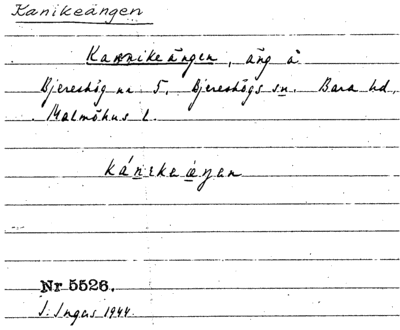 Kanikeängen
Kannikeängen, äng å
Bjereshög nr 5, Bjereshögs sn. Bara hd,
Malmöhus l.
kánikeäŋen
Nr 5526.
J. Ingers 1944.